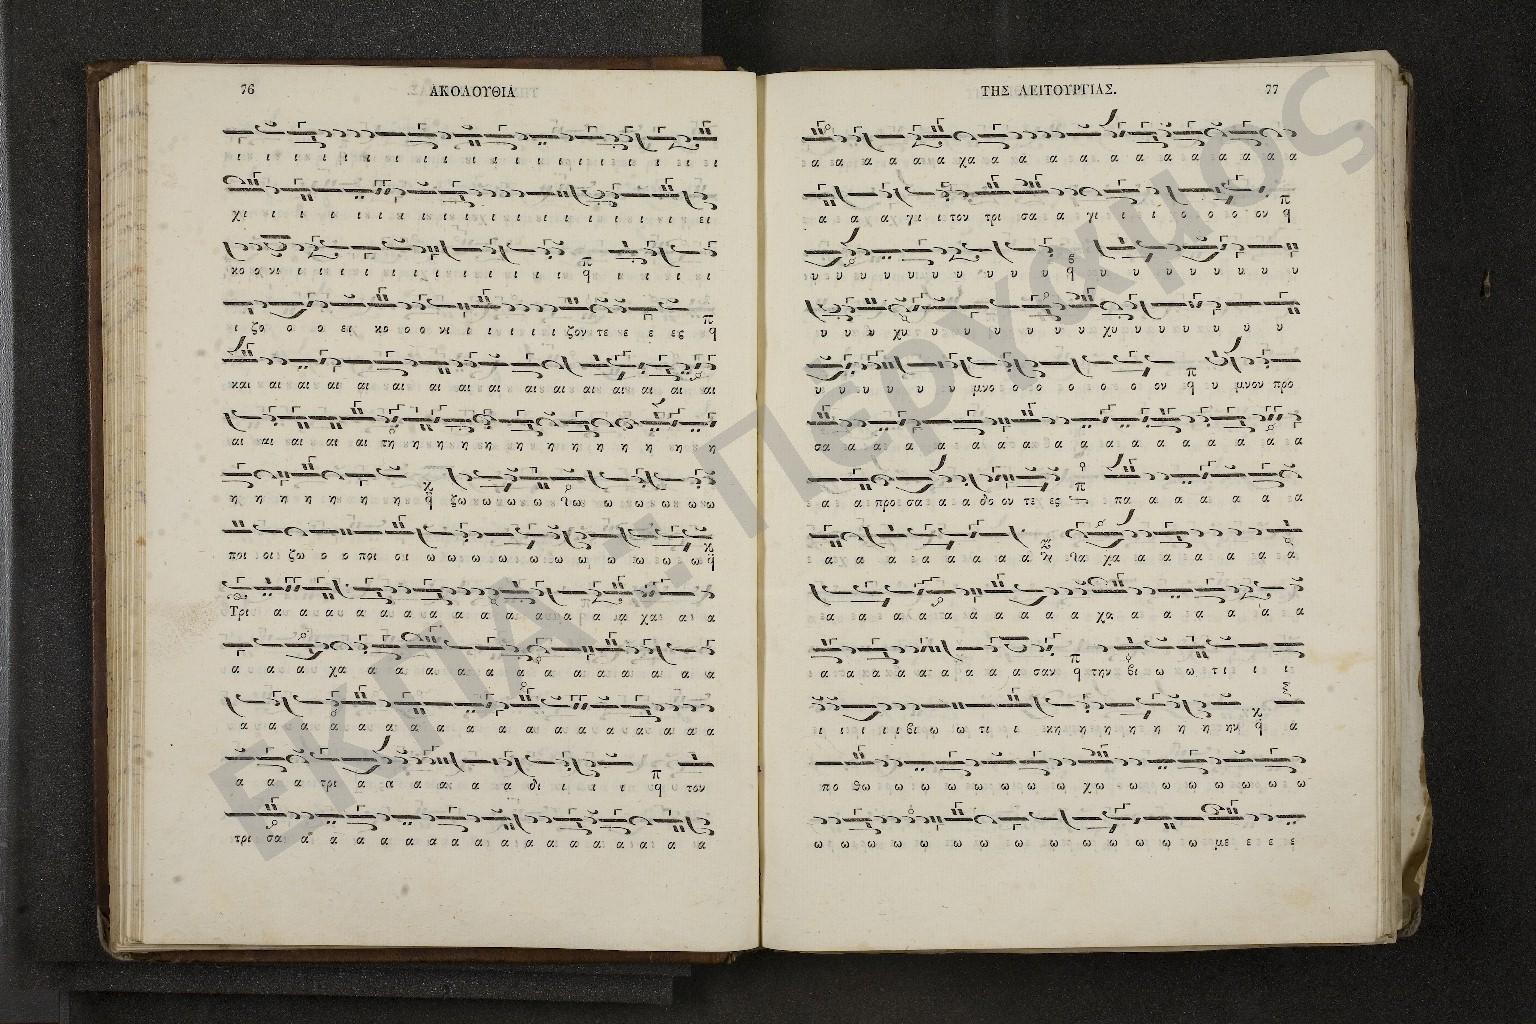 76
ΑΚΟΛΟΥΘΙΑ
ι ι ι ι ι ι ι ι ι ι ι ι ι ι ι ι ι ι ι
χι ι ι ι ι ι ι ι ι ι ι ι ι ι ι ι ει
κο ο νι ι ι ι ι ι ι ι ι ι ι ι ι ι ι ι
ι ζο ο ο ει κο ο ο νι ι ι ι ι ι ι ζον τε ε ε ε ες
και αι αι αι αι αι αι αι αι αι αι αι αι αι αι αι
αι αι αι αι αι τη η η η η η η η η η η η
η η η η η η η ξω ω ω ω ω ω ω ω ω ω ω
ποι οι ζω ο ο ποι οι ω ω ω ω ω ω ω ω ω ω ω ω
Τρι α α α α α α α α α α α α α α χα α α
α α α χα α α α α α α α α α α α α
α α α α α α α α α α α α α α α α α
α α α τρι α α α α α α α δι ι ι ι τον
τρι σα α α α α α α α α α α α α α α α α α
ΤΗΣ ΛΕΙΤΟΥΡΓΙΑΣ.
77
α α α α α α χα α α α α α α α α α α α
α α α α γι ι τον τρι σα α α γι ι ι ο ο ο ο ον
υ υ υ υ υ υ υ υ υ υ υ υ υ υ υ υ υ
υ υ υ χυ υ υ υ υ υ υ χυ υ υ υ υ υ υ υ
υ υ υ υ υ υ υ μνο ο ο ο ο ο ο ο ον υ μνον προ
σα α α α α α α α α α α α α α α α α α
α α προ σα α α α δο ον τε ες πα α α α α α α
α α α α α α α α α θα χα α α α α α α
α α α α α α α α α α χα α α α α α α
α α α α α α α α α α σαν την βι ω ω τι ι ι
ι ι ι ι βι ω ω τι ι ι κη η η η η η η η ην α
πο θω ω ω ω ω ω ω ω ω χω ω ω ω ω ω ω ω
ω ω ω ω ω ω ω ω ω ω ω ω ω ω ω με ε ε ε
ΕΚΠΑ ... Πέργαμος